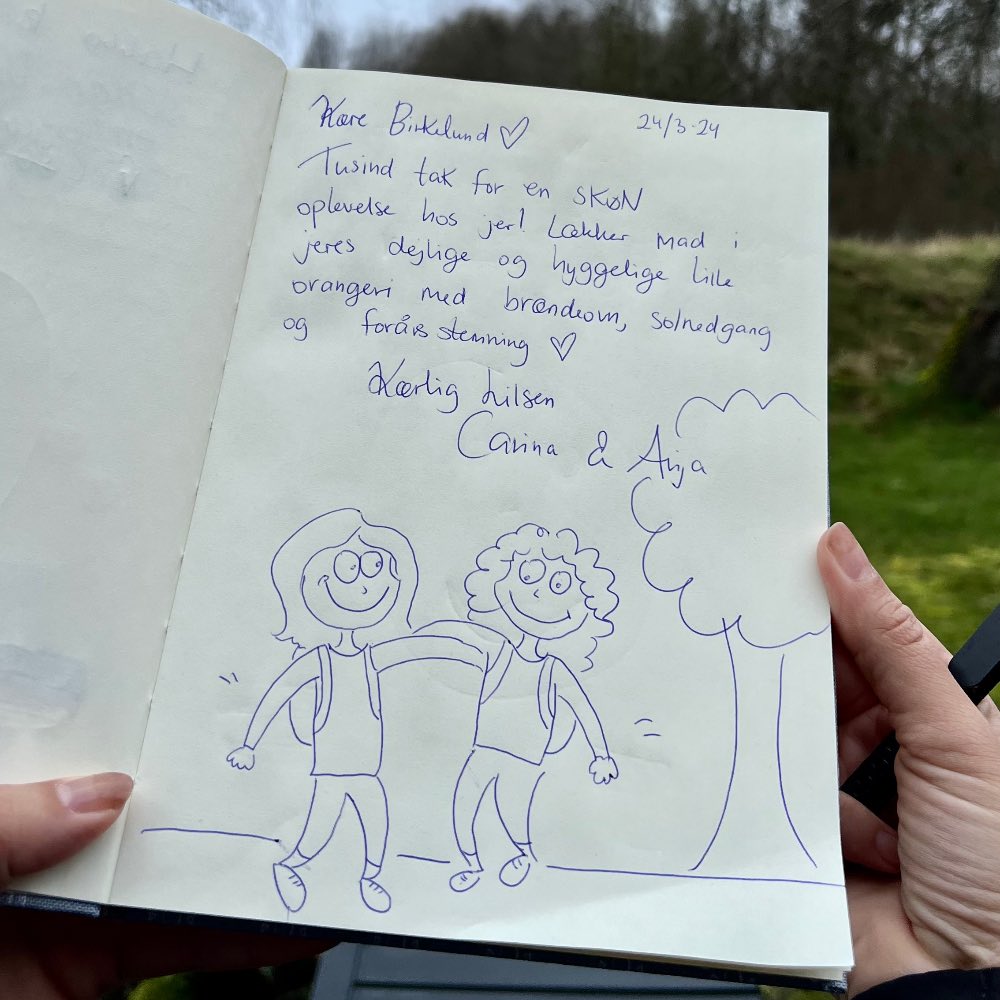 Kære Birkelund ♡
24/3-24
Tusind tak for en SKøN
oplevelse hos jer! Lækker mad i
jeres dejlige og hyggelige lille
orangeri med brændeovn, solnedgang
og forårsstemning ♡
Kærlig hilsen
Carina & Anja